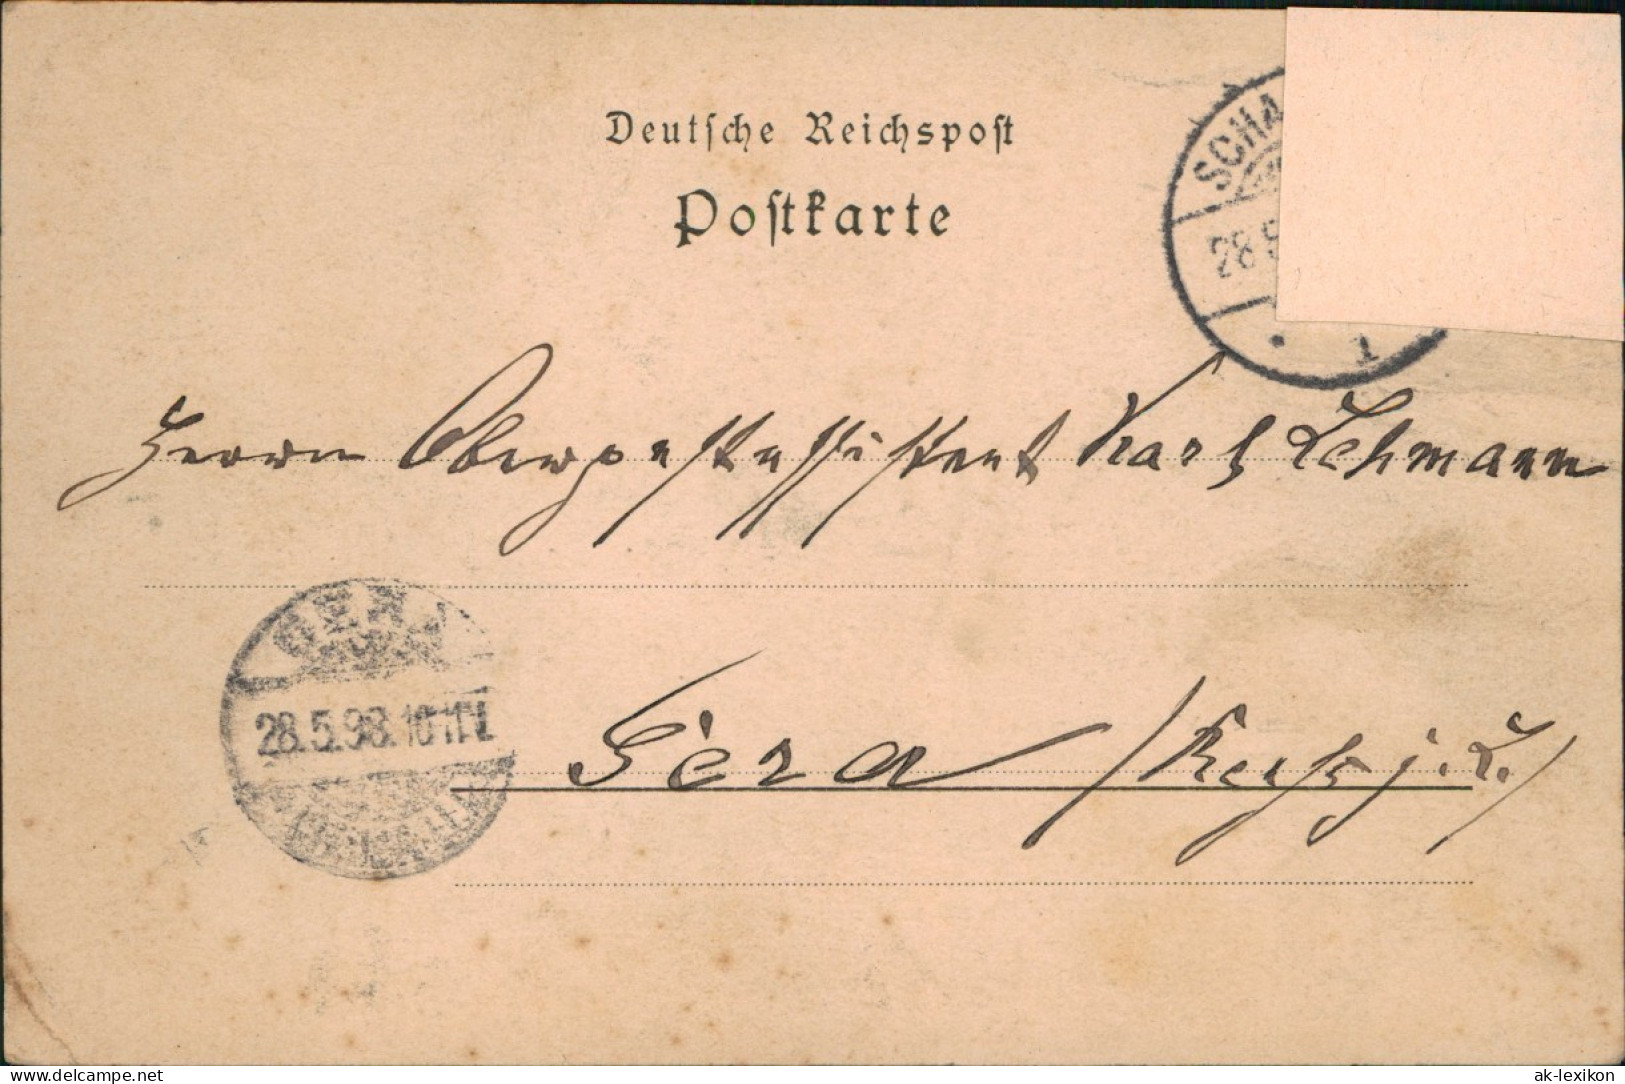 Deutsche Reichspost
Postkarte
SCHA
28.5
1
Herrn Oberpostassistent Karl Lehmann
GERA
28.5.98. 10-11 V.
Gera / Reuß j. L./
www.delcampe.net
ak-lexikon